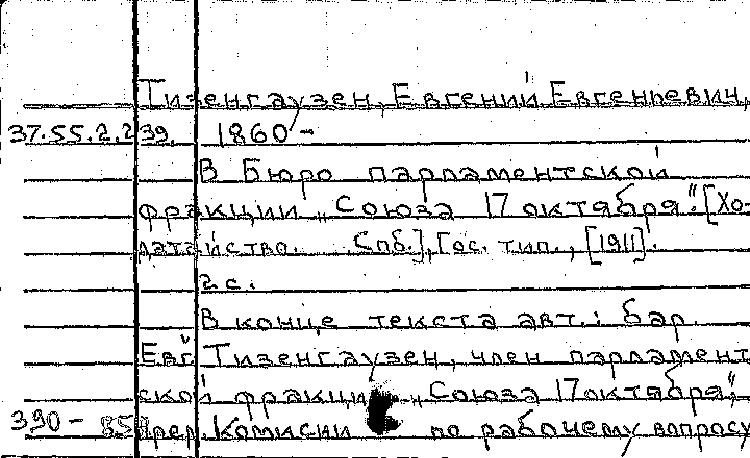 Тизенгаузен, Евгений Евгеньевич,
37.55.2.239. 1860 –
В Бюро парламентской
фракции „Союза 17 октября". [Хо-
датайство. Спб.], Гос. тип., [1911].
2 с.
В конце текста авт.: бар.
Евг. Тизенгаузен, член парламент-
ской фракции „Союза 17 октября",
390 – пред. Комисии по рабочему вопросу